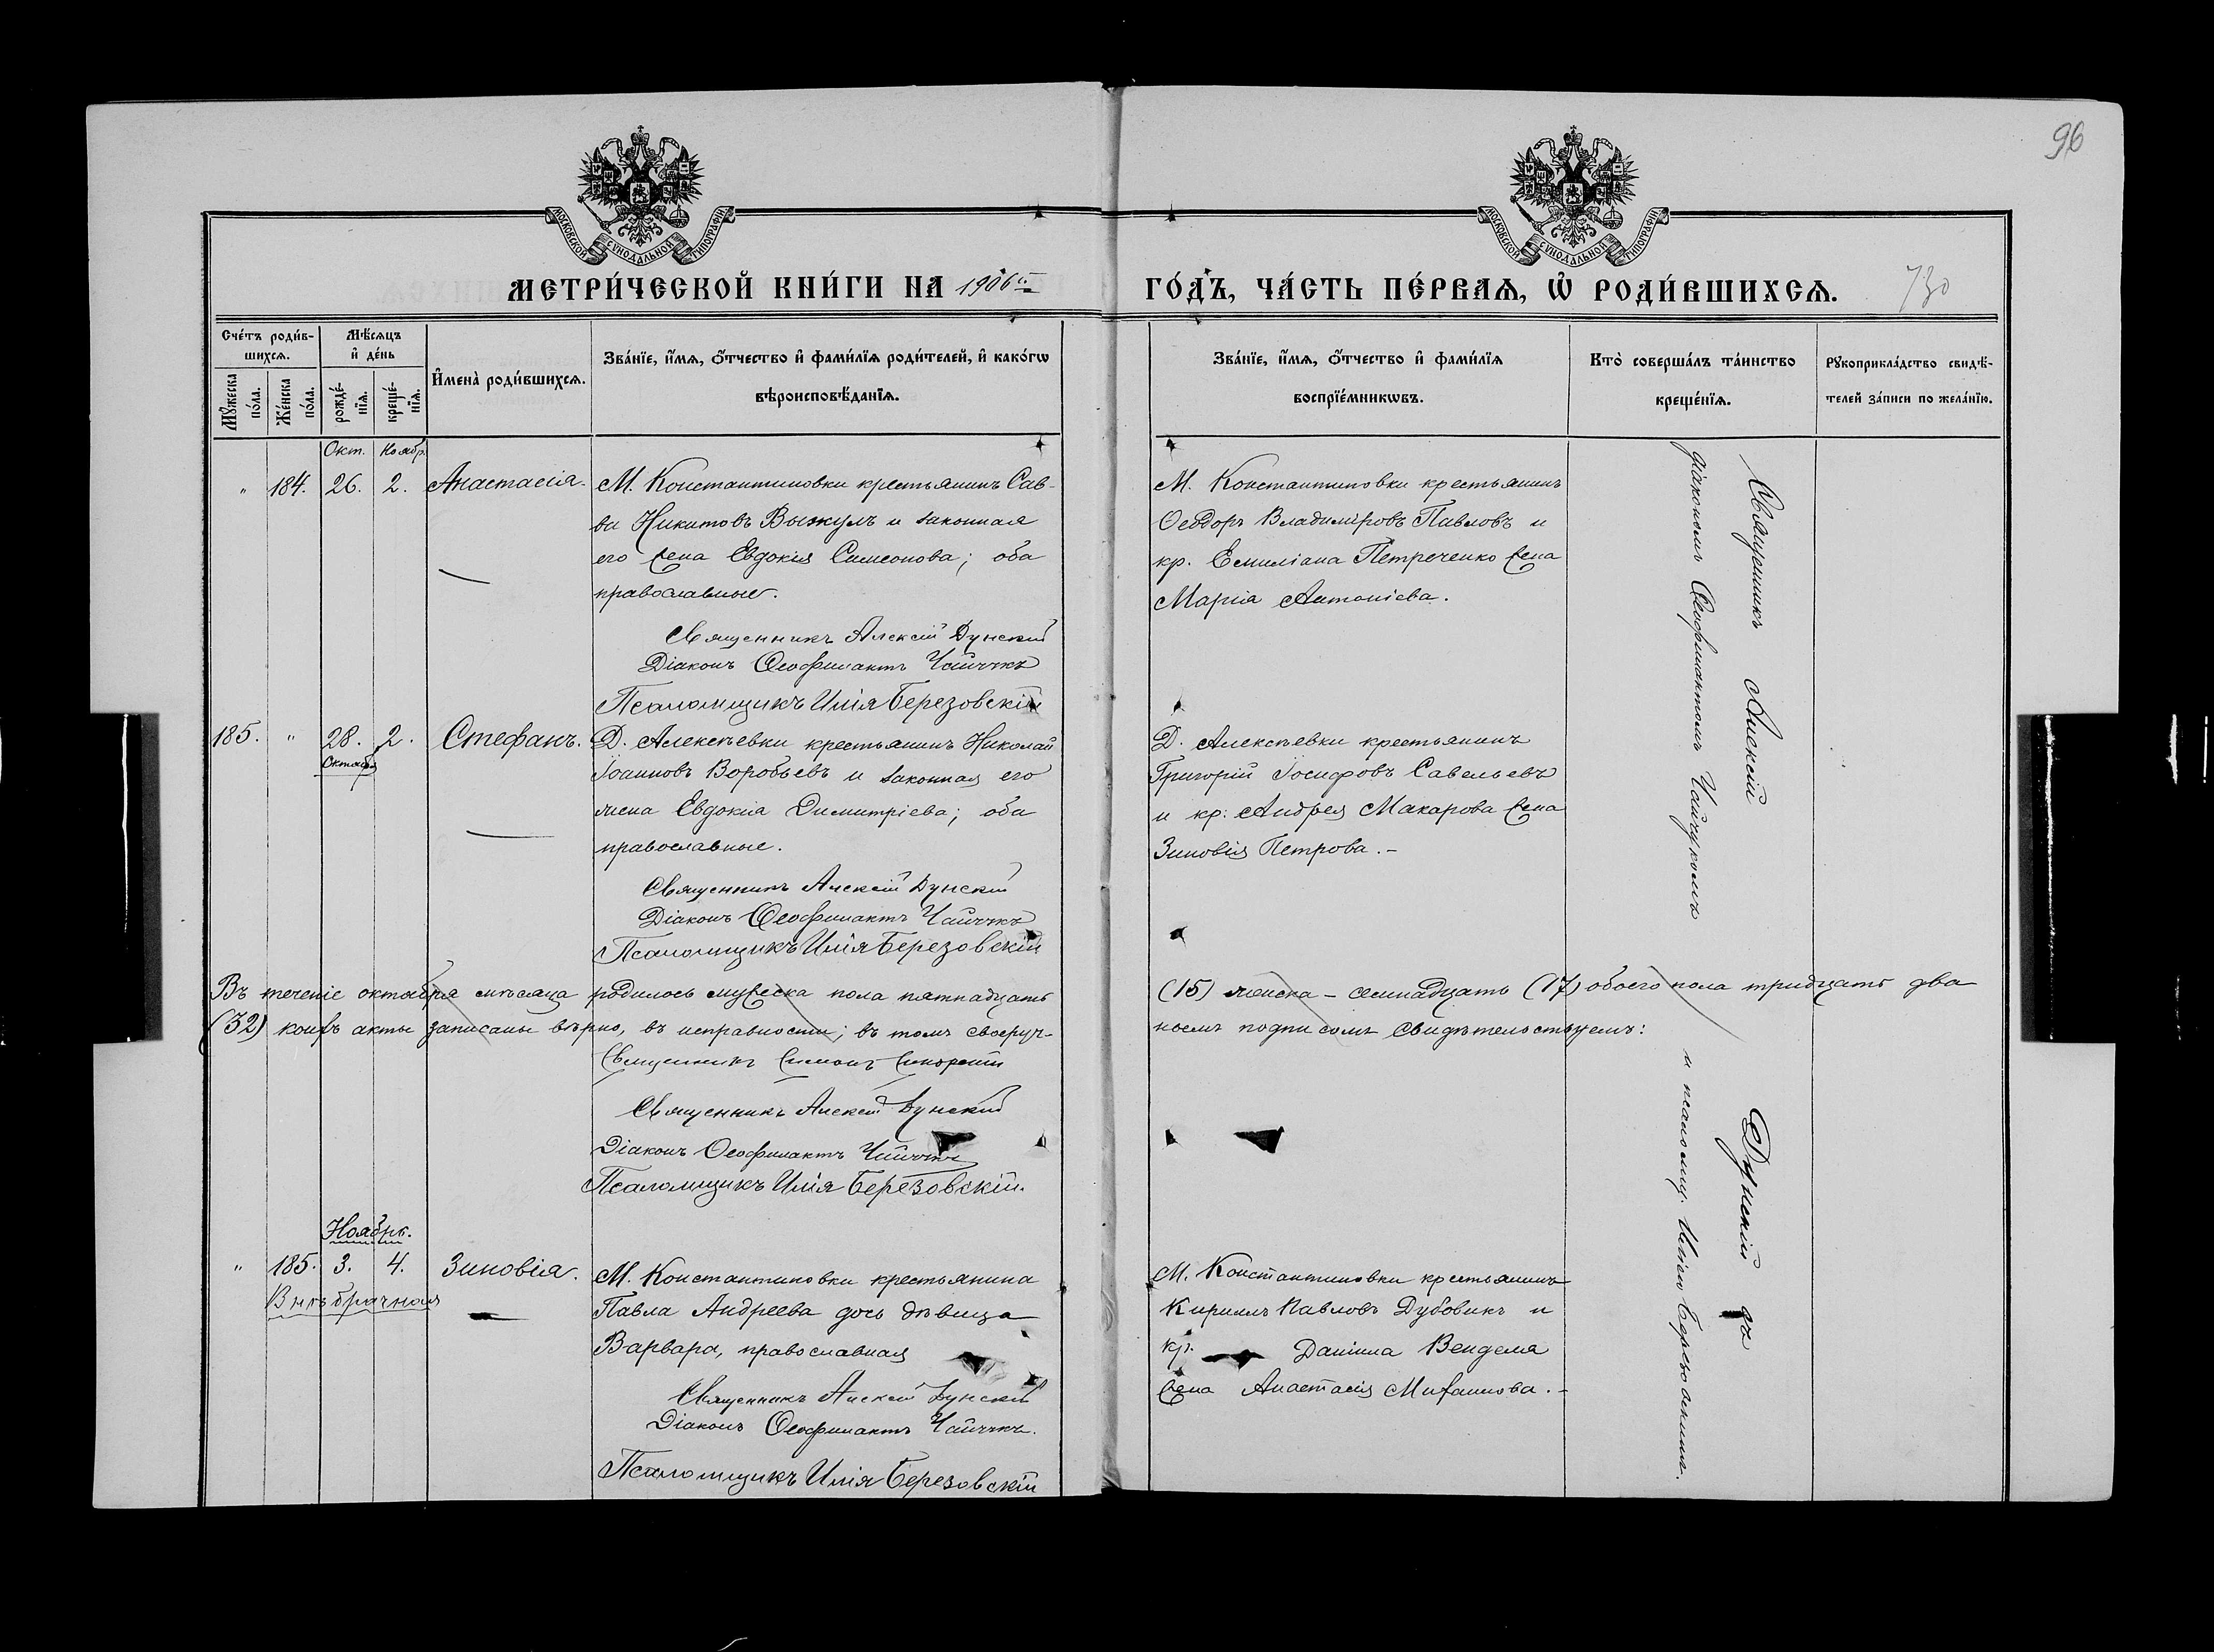 96
МОСКОВСКОЙ СУНОДАЛЬНОЙ ТИПОГРАФІИ
МОСКОВСКОЙ СУНОДАЛЬНОЙ ТИПОГРАФІИ
МЕТРИ́ЧЕСКОЙ КНИ́ГИ НА 1906й
ГО́ДЪ, ЧА́СТЬ ПЕ́РВАѦ, Ѡ҆ РОДИ́ВШИХСѦ.
730
Сче́тъ роди́в-
шихсѧ.
Мꙋ́жеска по́ла.
Же́нска по́ла.
Мѣ́сѧцъ
и҆ де́нь
рожде́-
нїѧ.
креще́-
нїѧ.
И҆мена̀ роди́вшихсѧ.
Зва́нїе, и҆́мѧ, ѻ҆́тчество и҆ фами́лїѧ роди́телей, и҆ како́гѡ
вѣроисповѣ́данїѧ.
Зва́нїе, и҆́мѧ, ѻ҆́тчество и҆ фами́лїѧ
воспрїе́мникѡвъ.
Кто̀ соверша́лъ та́инство
креще́нїѧ.
Рꙋкоприкла́дство свидѣ́-
телей за́писи по жела́нїю.
Окт. Ноябр.
" 184. 26. 2. Анастасія.
М. Константиновки крестьянинъ Сав-
ва Никитовъ Выжулъ и законная
его жена Евдокія Симеонова; оба
православные.
Священникъ Алексій Дунскій
Діаконъ Ѳеофилактъ Чайчукъ
Псаломщикъ Илія Березовскій
М. Константиновки крестьянинъ
Ѳеодоръ Владиміровъ Павловъ и
кр. Емиліана Петреченко жена
Марія Антоніева.
185. " 28. 2. Стефанъ.
Октября
Д. Алексѣевки крестьянинъ Николай
Іоанновъ Воробьевъ и законная его
жена Евдокія Димитріева; оба
православные.
Священникъ Алексій Дунскій
Діаконъ Ѳеофилактъ Чайчукъ
Псаломщикъ Илія Березовскій
Д. Алексѣевки крестьянинъ
Григорій Іосифовъ Савельевъ
и кр. Андрея Макарова жена
Зиновія Петрова.-
Въ теченіе октября мѣсяца родилось мужеска пола пятнадцать
(15) женска - семнадцать (17) обоего пола тридцать два
(32) коихъ акты записаны вѣрно, въ исправности; въ томъ своеруч-
ноемъ подписомъ свидѣтельствуемъ:
Священникъ Симонъ
Священникъ Алексій Дунскій
Діаконъ Ѳеофилактъ Чайчукъ
Псаломщикъ Илія Березовскій.
Ноябрь.
" 185. 3. 4. Зиновія.
Внѣбрачная
М. Константиновки крестьянина
Павла Андреева дочь дѣвица
Варвара, православная
Священникъ Алексій Дунскій
Діаконъ Ѳеофилактъ Чайчукъ.
Псаломщикъ Илія Березовскій
М. Константиновки крестьянинъ
Кириллъ Павловъ Дубовикъ и
кр. Даніила Венделя
жена Анастасія Михаилова.-
Священникъ Алексій Дунскій съ
діакономъ Ѳеофилактомъ Чайчукомъ
и псаломщ. Иліею Березовскимъ.